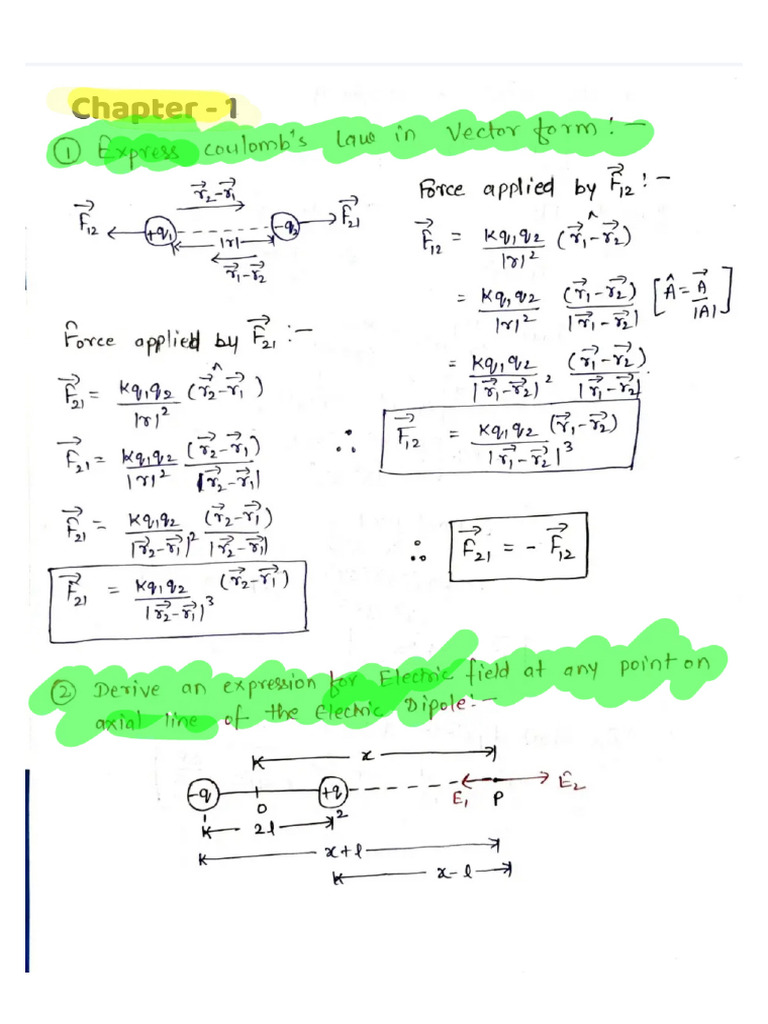 Chapter - 1
① Express coulomb's law in vector form :-
r⃗₂-r⃗₁
F⃗₁₂ +q₁ -q₂ F⃗₂₁
|r|
r⃗₁-r⃗₂
Force applied by F⃗₂₁ :-
F⃗₂₁ = Kq₁q₂/|r|² (r⃗₂-r⃗₁)^
F⃗₂₁ = Kq₁q₂/|r|² (r⃗₂-r⃗₁)/|r⃗₂-r⃗₁|
F⃗₂₁ = Kq₁q₂/|r⃗₂-r⃗₁|² (r⃗₂-r⃗₁)/|r⃗₂-r⃗₁|
F⃗₂₁ = Kq₁q₂/|r⃗₂-r⃗₁|³ (r⃗₂-r⃗₁)
Force applied by F⃗₁₂ :-
F⃗₁₂ = Kq₁q₂/|r|² (r⃗₁-r⃗₂)^
= Kq₁q₂/|r|² (r⃗₁-r⃗₂)/|r⃗₁-r⃗₂| [Â = A⃗/|A|]
= Kq₁q₂/|r⃗₁-r⃗₂|² (r⃗₁-r⃗₂)/|r⃗₁-r⃗₂|.
∴ F⃗₁₂ = Kq₁q₂ (r⃗₁-r⃗₂)/|r⃗₁-r⃗₂|³
∴ F⃗₂₁ = - F⃗₁₂
② Derive an expression for Electric field at any point on
axial line of the Electric Dipole :-
x
-q O +q E₁ P Ê₂
2l 2
x+l
x-l